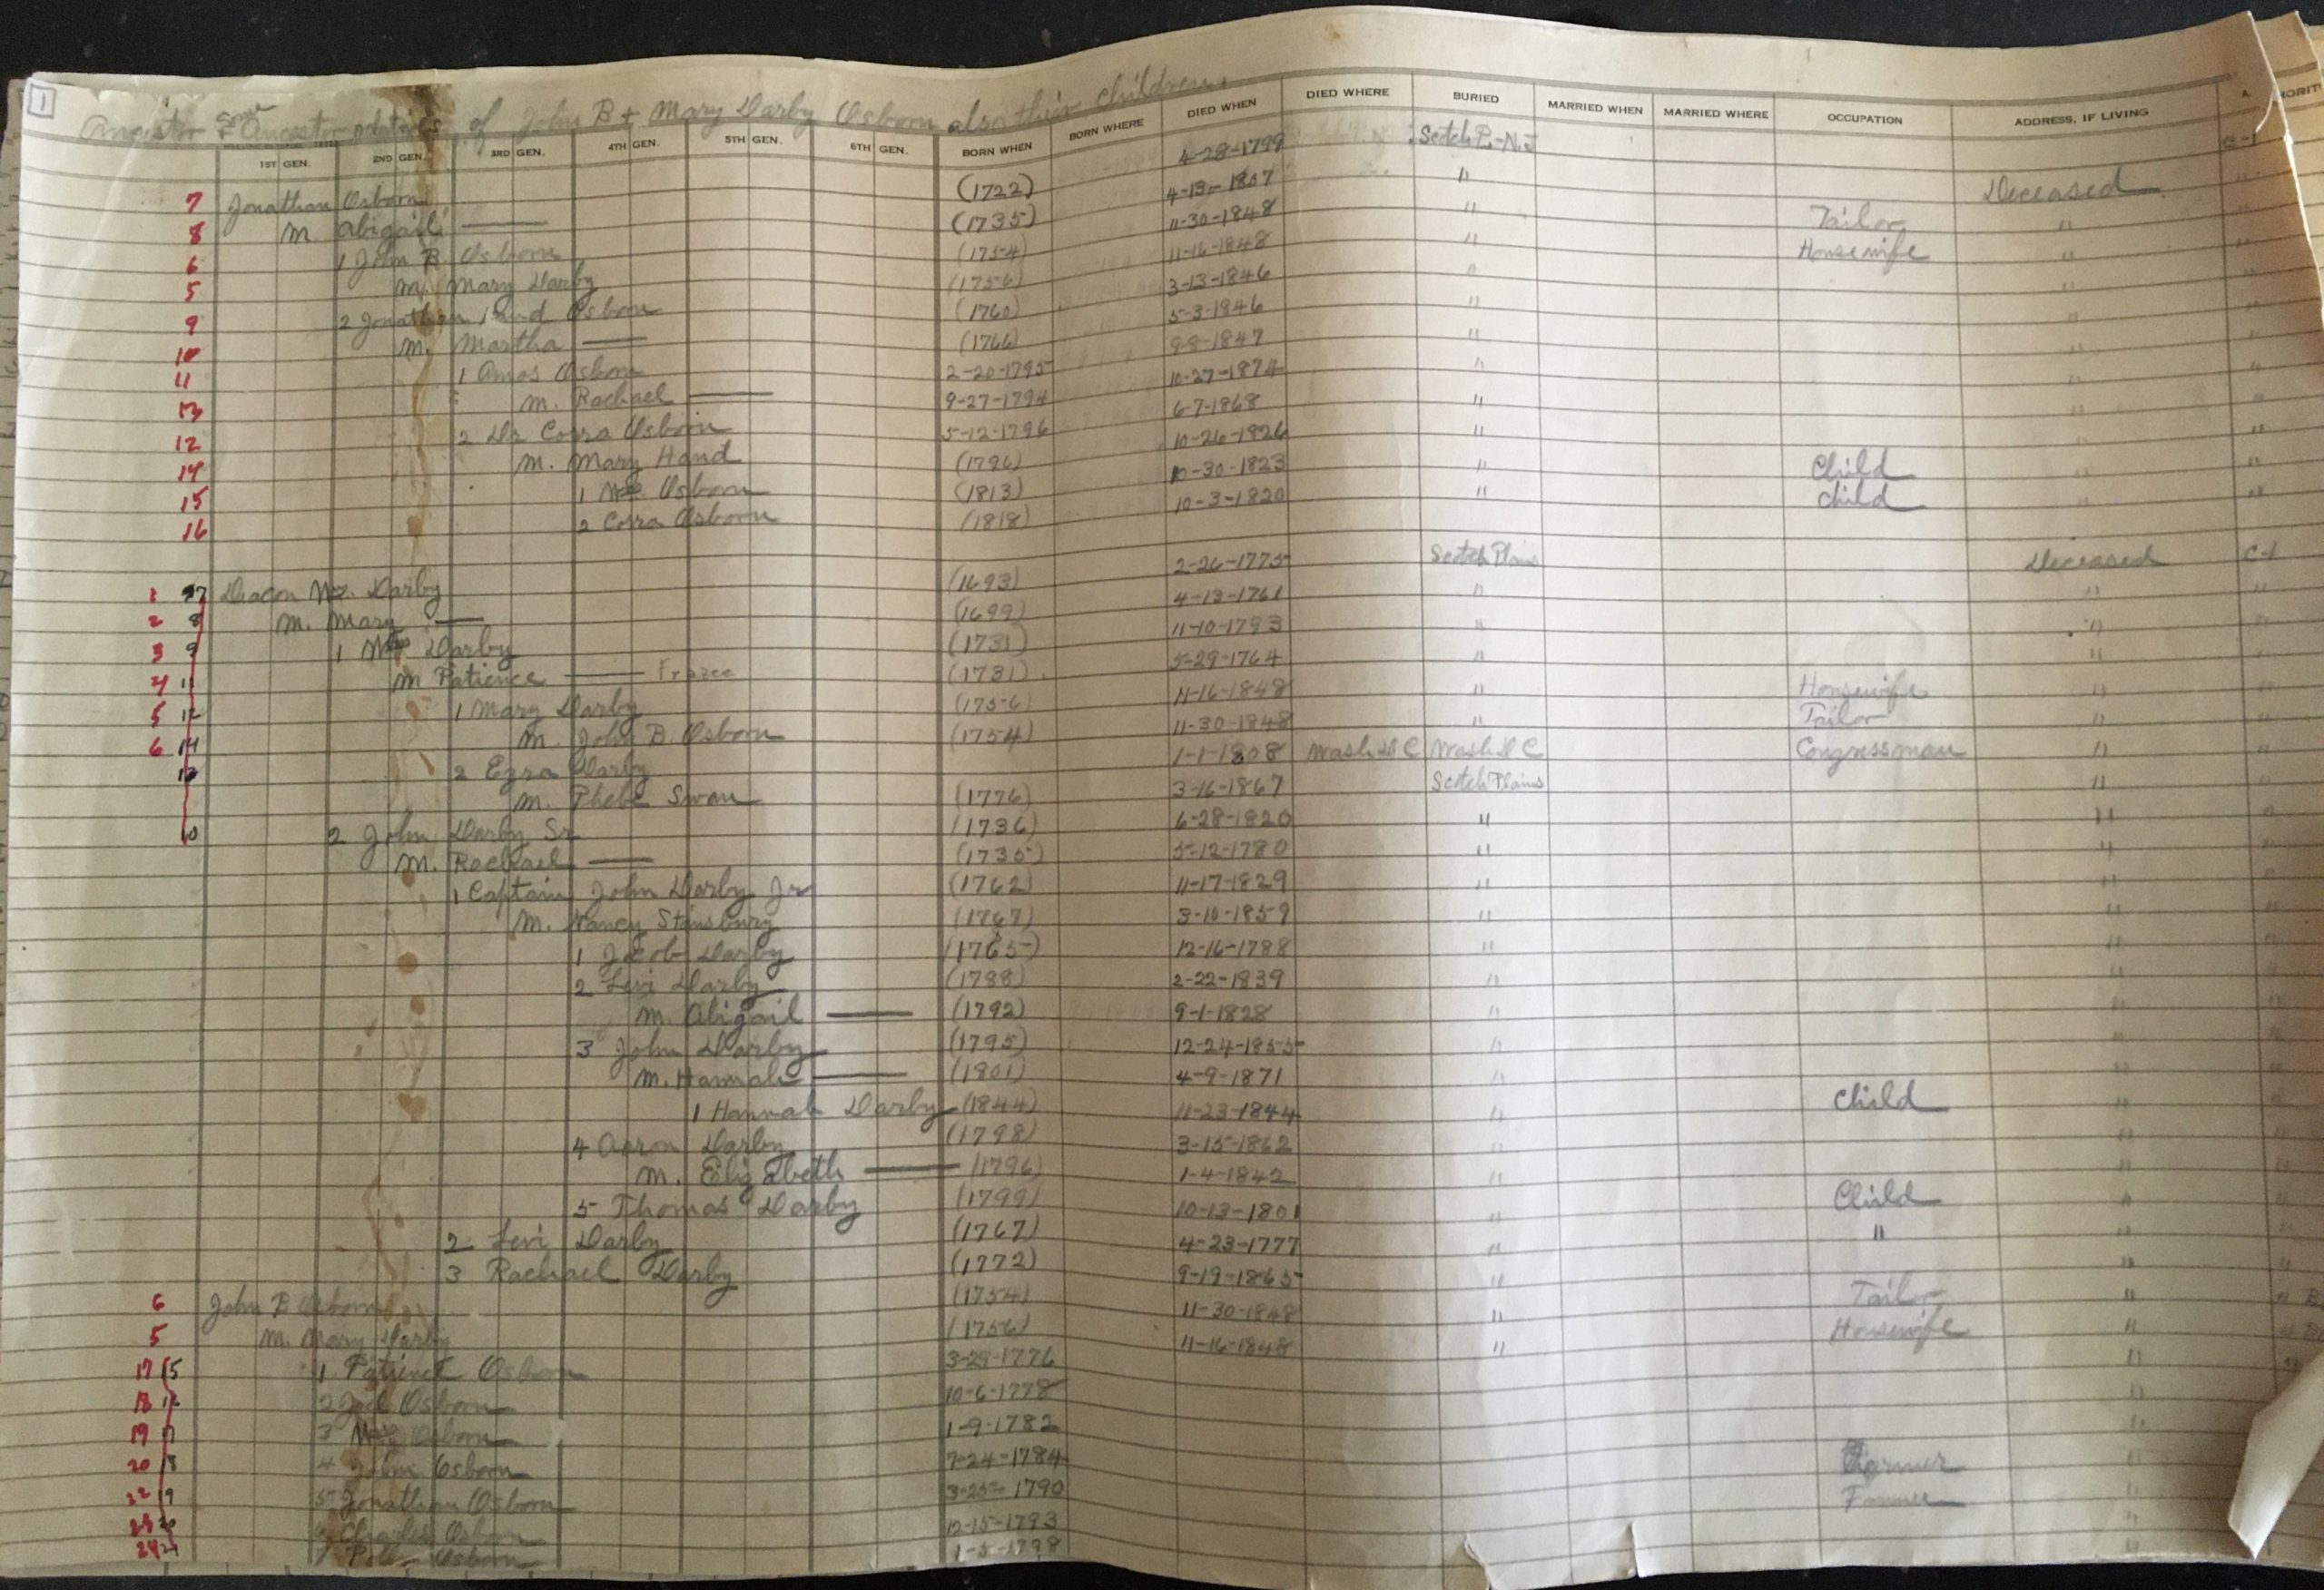 1
Ancestor & some Ancestor relatives of John B + Mary Darby Osborn also their children.
1ST GEN. 2ND GEN. 3RD GEN. 4TH GEN. 5TH GEN. 6TH GEN. BORN WHEN BORN WHERE DIED WHEN DIED WHERE BURIED MARRIED WHEN MARRIED WHERE OCCUPATION ADDRESS, IF LIVING
7 Jonathan Osborn (1722) 4-28-1799 Scotch P.-N.J Deceased
8 m. Abigail — (1735) 4-13-1807 "
6 1 John B Osborn (1754) 11-30-1848 " Tailor "
5 m. Mary Darby (1756) 11-16-1848 " Housewife "
9 2 Jonathan Hand Osborn (1760) 3-13-1846 " "
10 m. Martha — (1766) 5-3-1846 " "
11 1 Amos Osborn 2-20-1795 9-8-1847 " "
13 m. Rachael — 9-27-1794 10-27-1874 " "
12 2 Dr Corra Osborn 5-12-1796 6-7-1868 " "
14 m. Mary Hand (1796) 10-26-1826 " "
15 1 Wm. Osborn (1813) 10-30-1823 " Child "
16 2 Corra Osborn (1818) 10-3-1820 " Child "
1 7 Deacon Wm. Darby (1693) 2-26-1775 Scotch Plains Deceased C-1
2 8 m. Mary — (1699) 4-13-1761 " " "
3 9 1 Wm Darby (1731) 11-10-1793 " " "
4 11 m Patience — Frazee (1731) 5-29-1764 " " "
5 12 1 Mary Darby (1756) 11-16-1848 " Housewife " "
6 14 m. John B. Osborn (1754) 11-30-1848 " Tailor " "
13 2 Ezra Darby 1-1-1808 Wash D C Wash D C Congressman " "
m. Phebe Swan (1776) 3-16-1867 Scotch Plains " "
10 2 John Darby Sr (1736) 6-28-1820 " " "
m. Rachael — (1735) 5-12-1780 " " "
1 Captain John Darby Jr (1762) 11-17-1829 " " "
m. Nancy Stansbury (1767) 3-10-1859 " " "
1 Jacob Darby 12-16-1788 " " "
2 Levi Darby (1788) 2-22-1839 " " "
m. Abigail — (1792) 9-1-1828 " " "
3 John Darby (1795) 12-24-1855 " " "
m. Hannah — (1801) 4-9-1871 " " "
1 Hannah Darby (1844) 11-23-1844 " Child " "
4 Aaron Darby (1798) 3-15-1862 " " "
m. Elizabeth — (1796) 1-4-1842 " " "
5 Thomas Darby (1799) 10-13-1801 " Child " "
2 Levi Darby (1767) 4-23-1777 " " " "
3 Rachael Darby (1772) 9-19-1865 " " "
6 John B Osborn (1754) 11-30-1848 " Tailor " "
5 m. Mary Darby (1756) 11-16-1848 " Housewife " "
17 15 1 Osborn 3-29-1776 "
18 16 2 Joel Osborn 10-6-1778 "
19 17 3 Wm Osborn 1-9-1782 "
20 18 4 John Osborn 7-24-1784 Farmer "
22 19 5 Jonathan Osborn 3-25-1790 Farmer "
23 20 6 Charles Osborn 12-15-1793 "
24 21 7 Osborn 1-5-1798 "